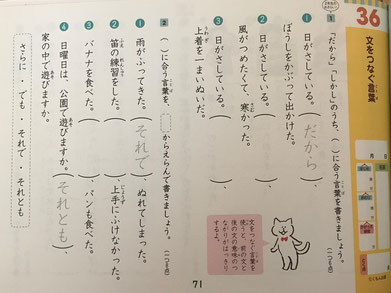 36
文をつなぐ言葉
月 日
1 「だから」「しかし」のうち、( )に合う言葉を書きましょう。(一つ6点)
① 日がさしている。(だから)、
ぼうしをかぶって出かけた。
② 日がさしている。( )、
風がつめたくて、寒かった。
③ 日がさしている。( )、
上着を一まいぬいだ。
文をつなぐ言葉を
使うと、前の文と
後の文の意味のつ
ながりがはっきり
するよ。
2 ( )に合う言葉を、 からえらんで書きましょう。(一つ6点)
① 雨がふってきた。(それで)、ぬれてしまった。
② 笛の練習をした。( )、上手にふけなかった。
③ バナナを食べた。( )、パンも食べた。
④ 日曜日は、公園で遊びますか。(それとも)、
家の中で遊びますか。
さらに ・ でも ・ それで ・ それとも
71